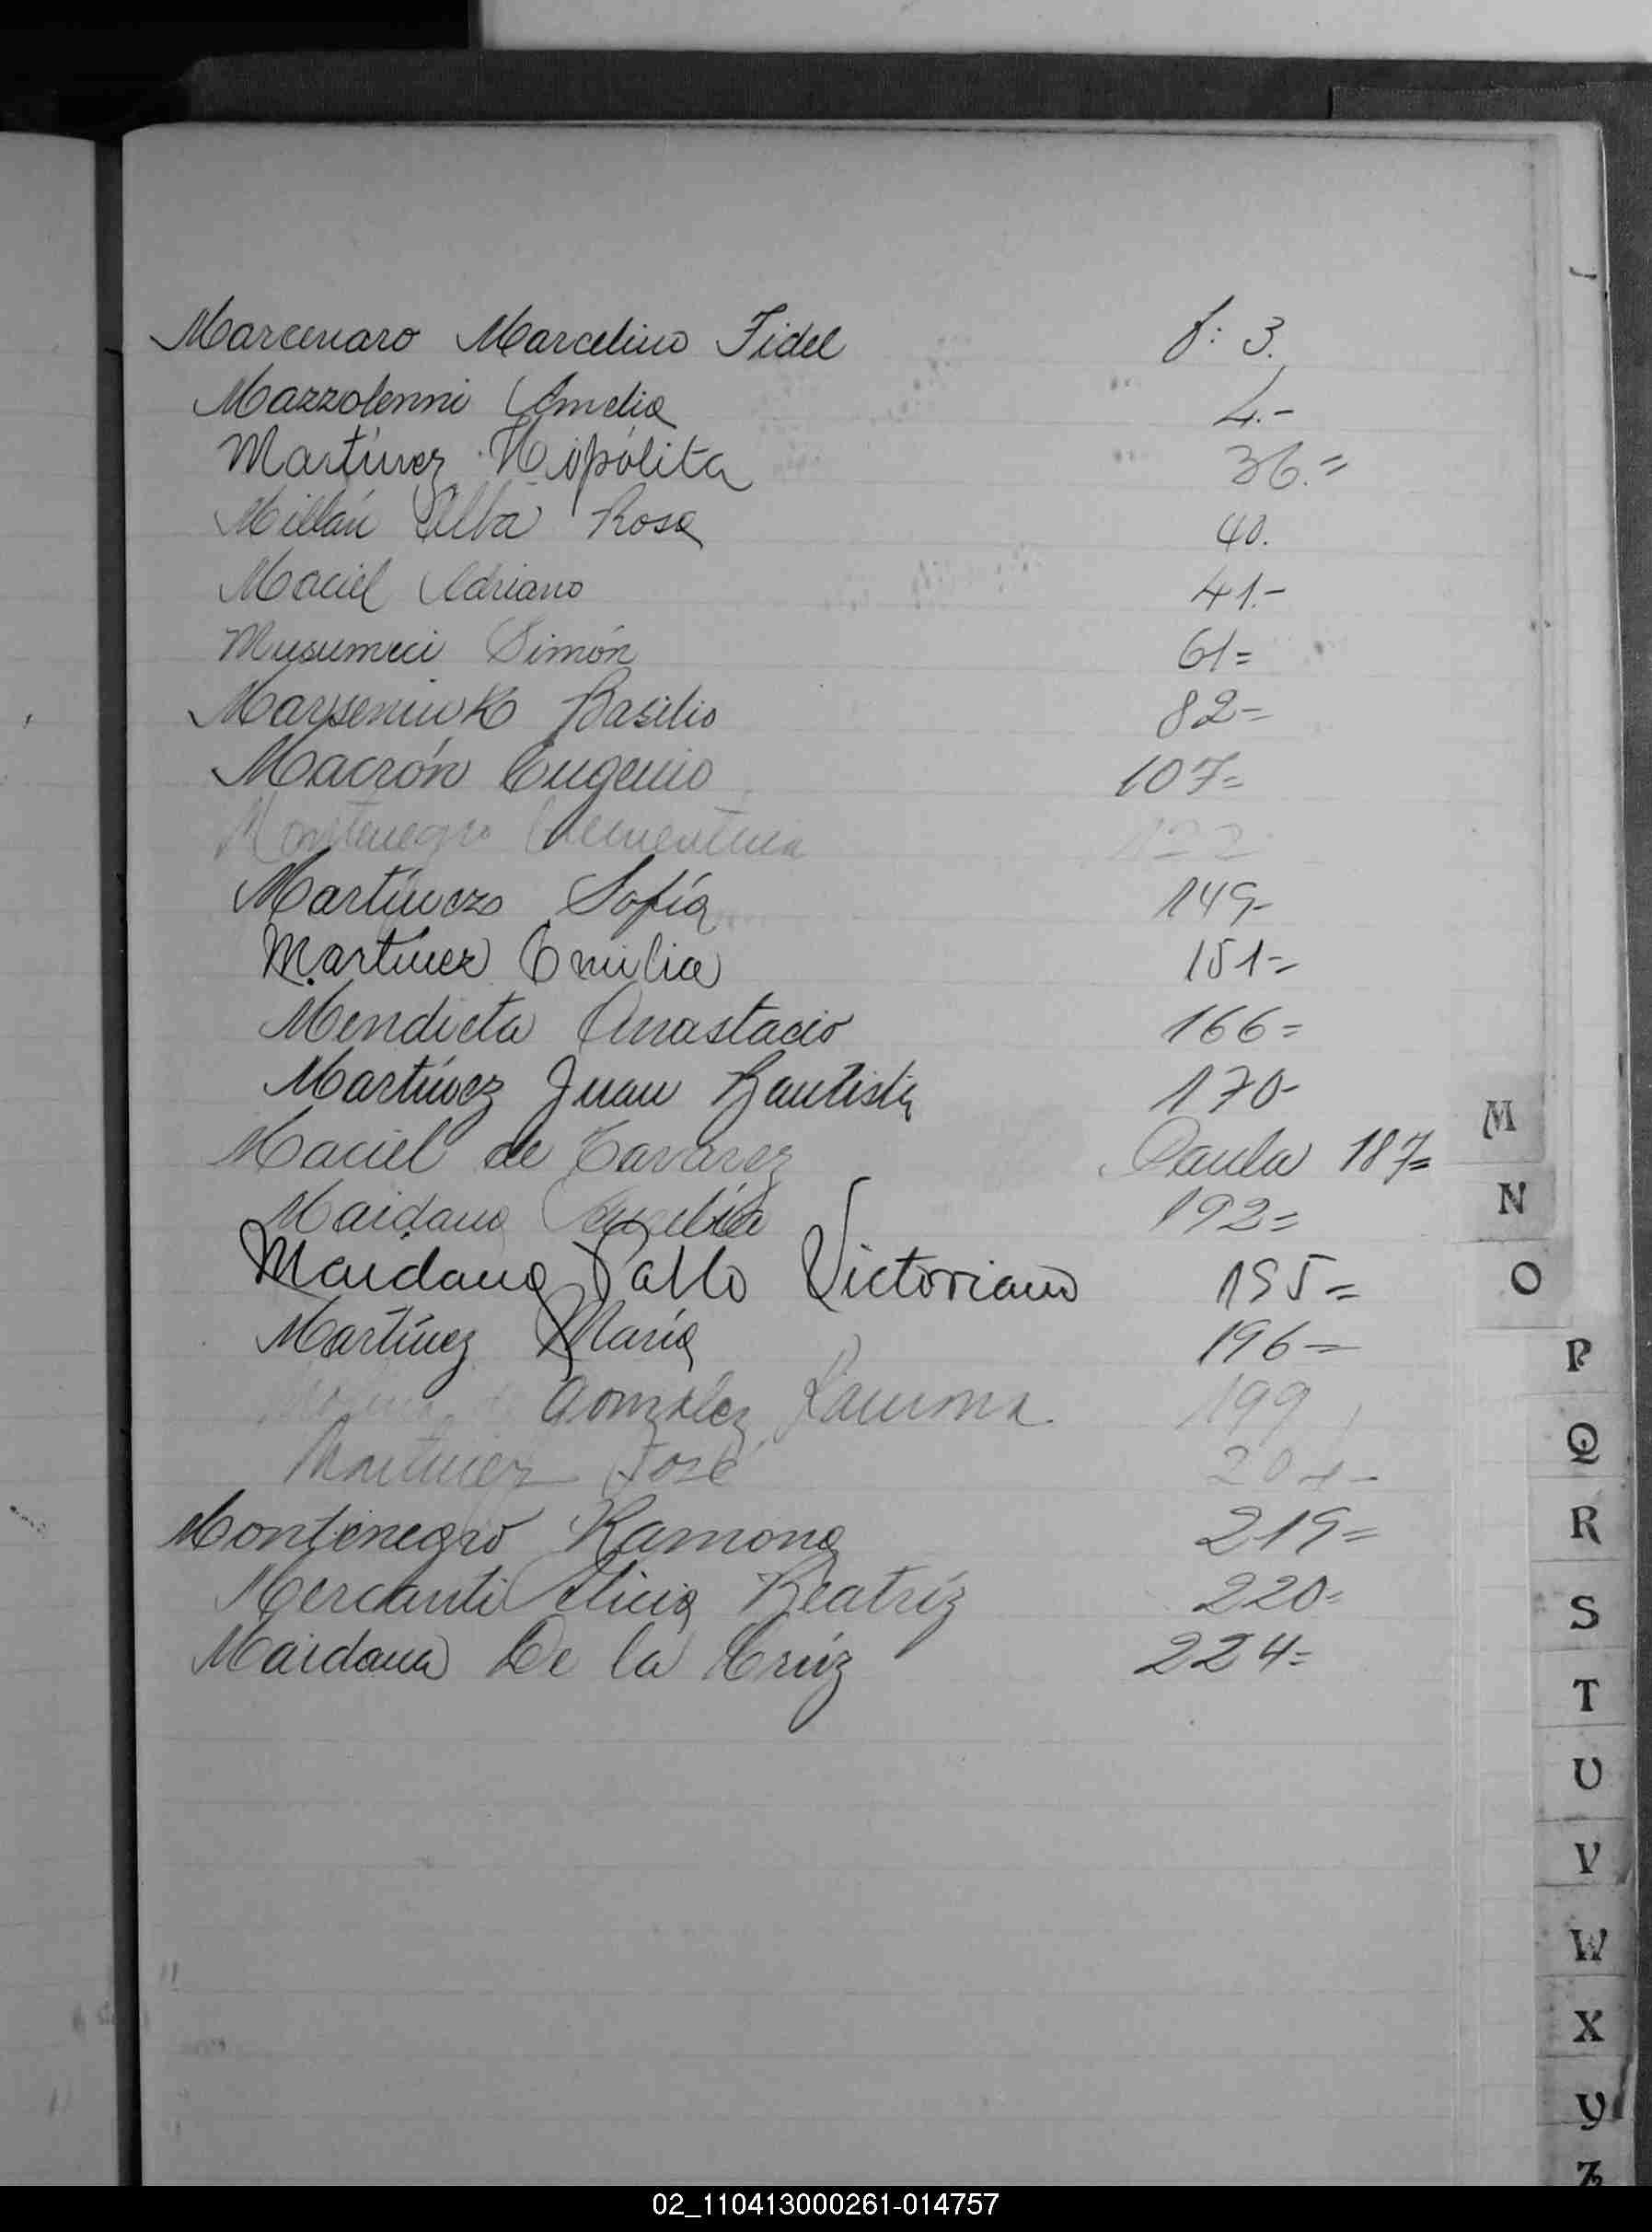 Marcenaro Marcelino Fidel f: 3.
Mazzolenni Amelia 4.-
Martínez Hipólita 36.=
Millán Alba Rosa 40.
Maciel Adriano 41.-
Musumeci Simón 61=
Marseniuk Basilio 82=
Macrón Eugenio 107=
Montenegro Clementina 122
Martínez Sofía 149-
Martínez Emilia 151=
Mendieta Anastacio 166=
Martínez Juan Bautista 170-
Maciel de Tavarez Paula 187=
Maidana 192=
Maidana Pablo Victoriano 195=
Martínez María 196=
González Ramona 199
Martinez José 204-
Montenegro Ramona 219=
Mercanti Alicia Beatríz 220=
Maidana De la Crúz 224=
M
N
O
P
Q
R
S
T
U
V
W
X
Y
Z
02_110413000261-014757